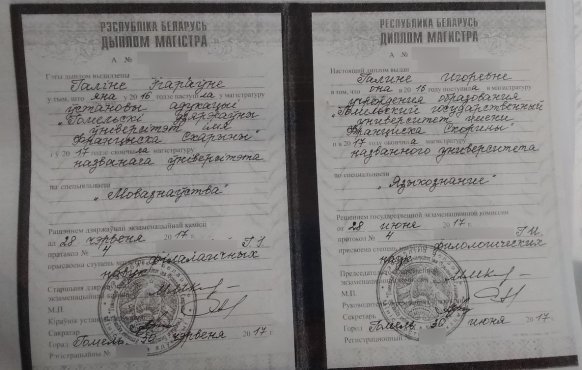 РЭСПУБЛІКА БЕЛАРУСЬ
ДЫПЛОМ МАГІСТРА
А №
Гэты дыплом выдадзены
Галіне Ігараўне
у тым, што яна у 2016 годзе паступіла у магістратуру
установы адукацыі
„Гомельскі дзяржаўны
універсітэт імя
Францыска Скарыны"
і ў 2017 годзе скончыла магістратуру
названага універсітэта
па спецыяльнасці
„Мовазнаўства"
Рашэннем дзяржаўнай экзаменацыйнай камісіі
ад 28 чэрвеня 2017 г.
пратакол № 4 Г.І.
прысвоена ступень магістра філалагічных
навук
Старшыня дзяржаўнай
экзаменацыйнай
М.П.
Кіраўнік установы
Сакратар
Горад Гомель. 30 чэрвеня 2017 г.
Рэгістрацыйны №
РЕСПУБЛИКА БЕЛАРУСЬ
ДИПЛОМ МАГИСТРА
А №
Настоящий диплом выдан
Галине Игоревне
в том, что она в 2016 году поступила в магистратуру
учреждения образования
„Гомельский государственный
университет имени
Франциска Скорины"
и в 2017 году окончила магистратуру
названного университета
по специальности
„Языкознание"
Решением государственной экзаменационной комиссии
от 28 июня 2017 г.
протокол № 4 Г.И.
присвоена степень магистра филологических
наук
Председатель
экзаменационной
М.П.
Руководитель
Секретарь
Город Гомель. 30 июня 2017 г.
Регистрационный №